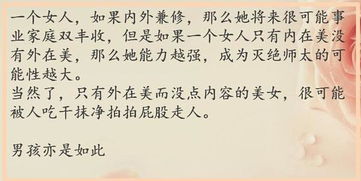 一个女人，如果内外兼修，那么她将来很可能事
业家庭双丰收，但是如果一个女人只有内在美没
有外在美，那么她能力越强，成为灭绝师太的可
能性越大。
当然了，只有外在美而没点内容的美女，很可能
被人吃干抹净拍拍屁股走人。
男孩亦是如此